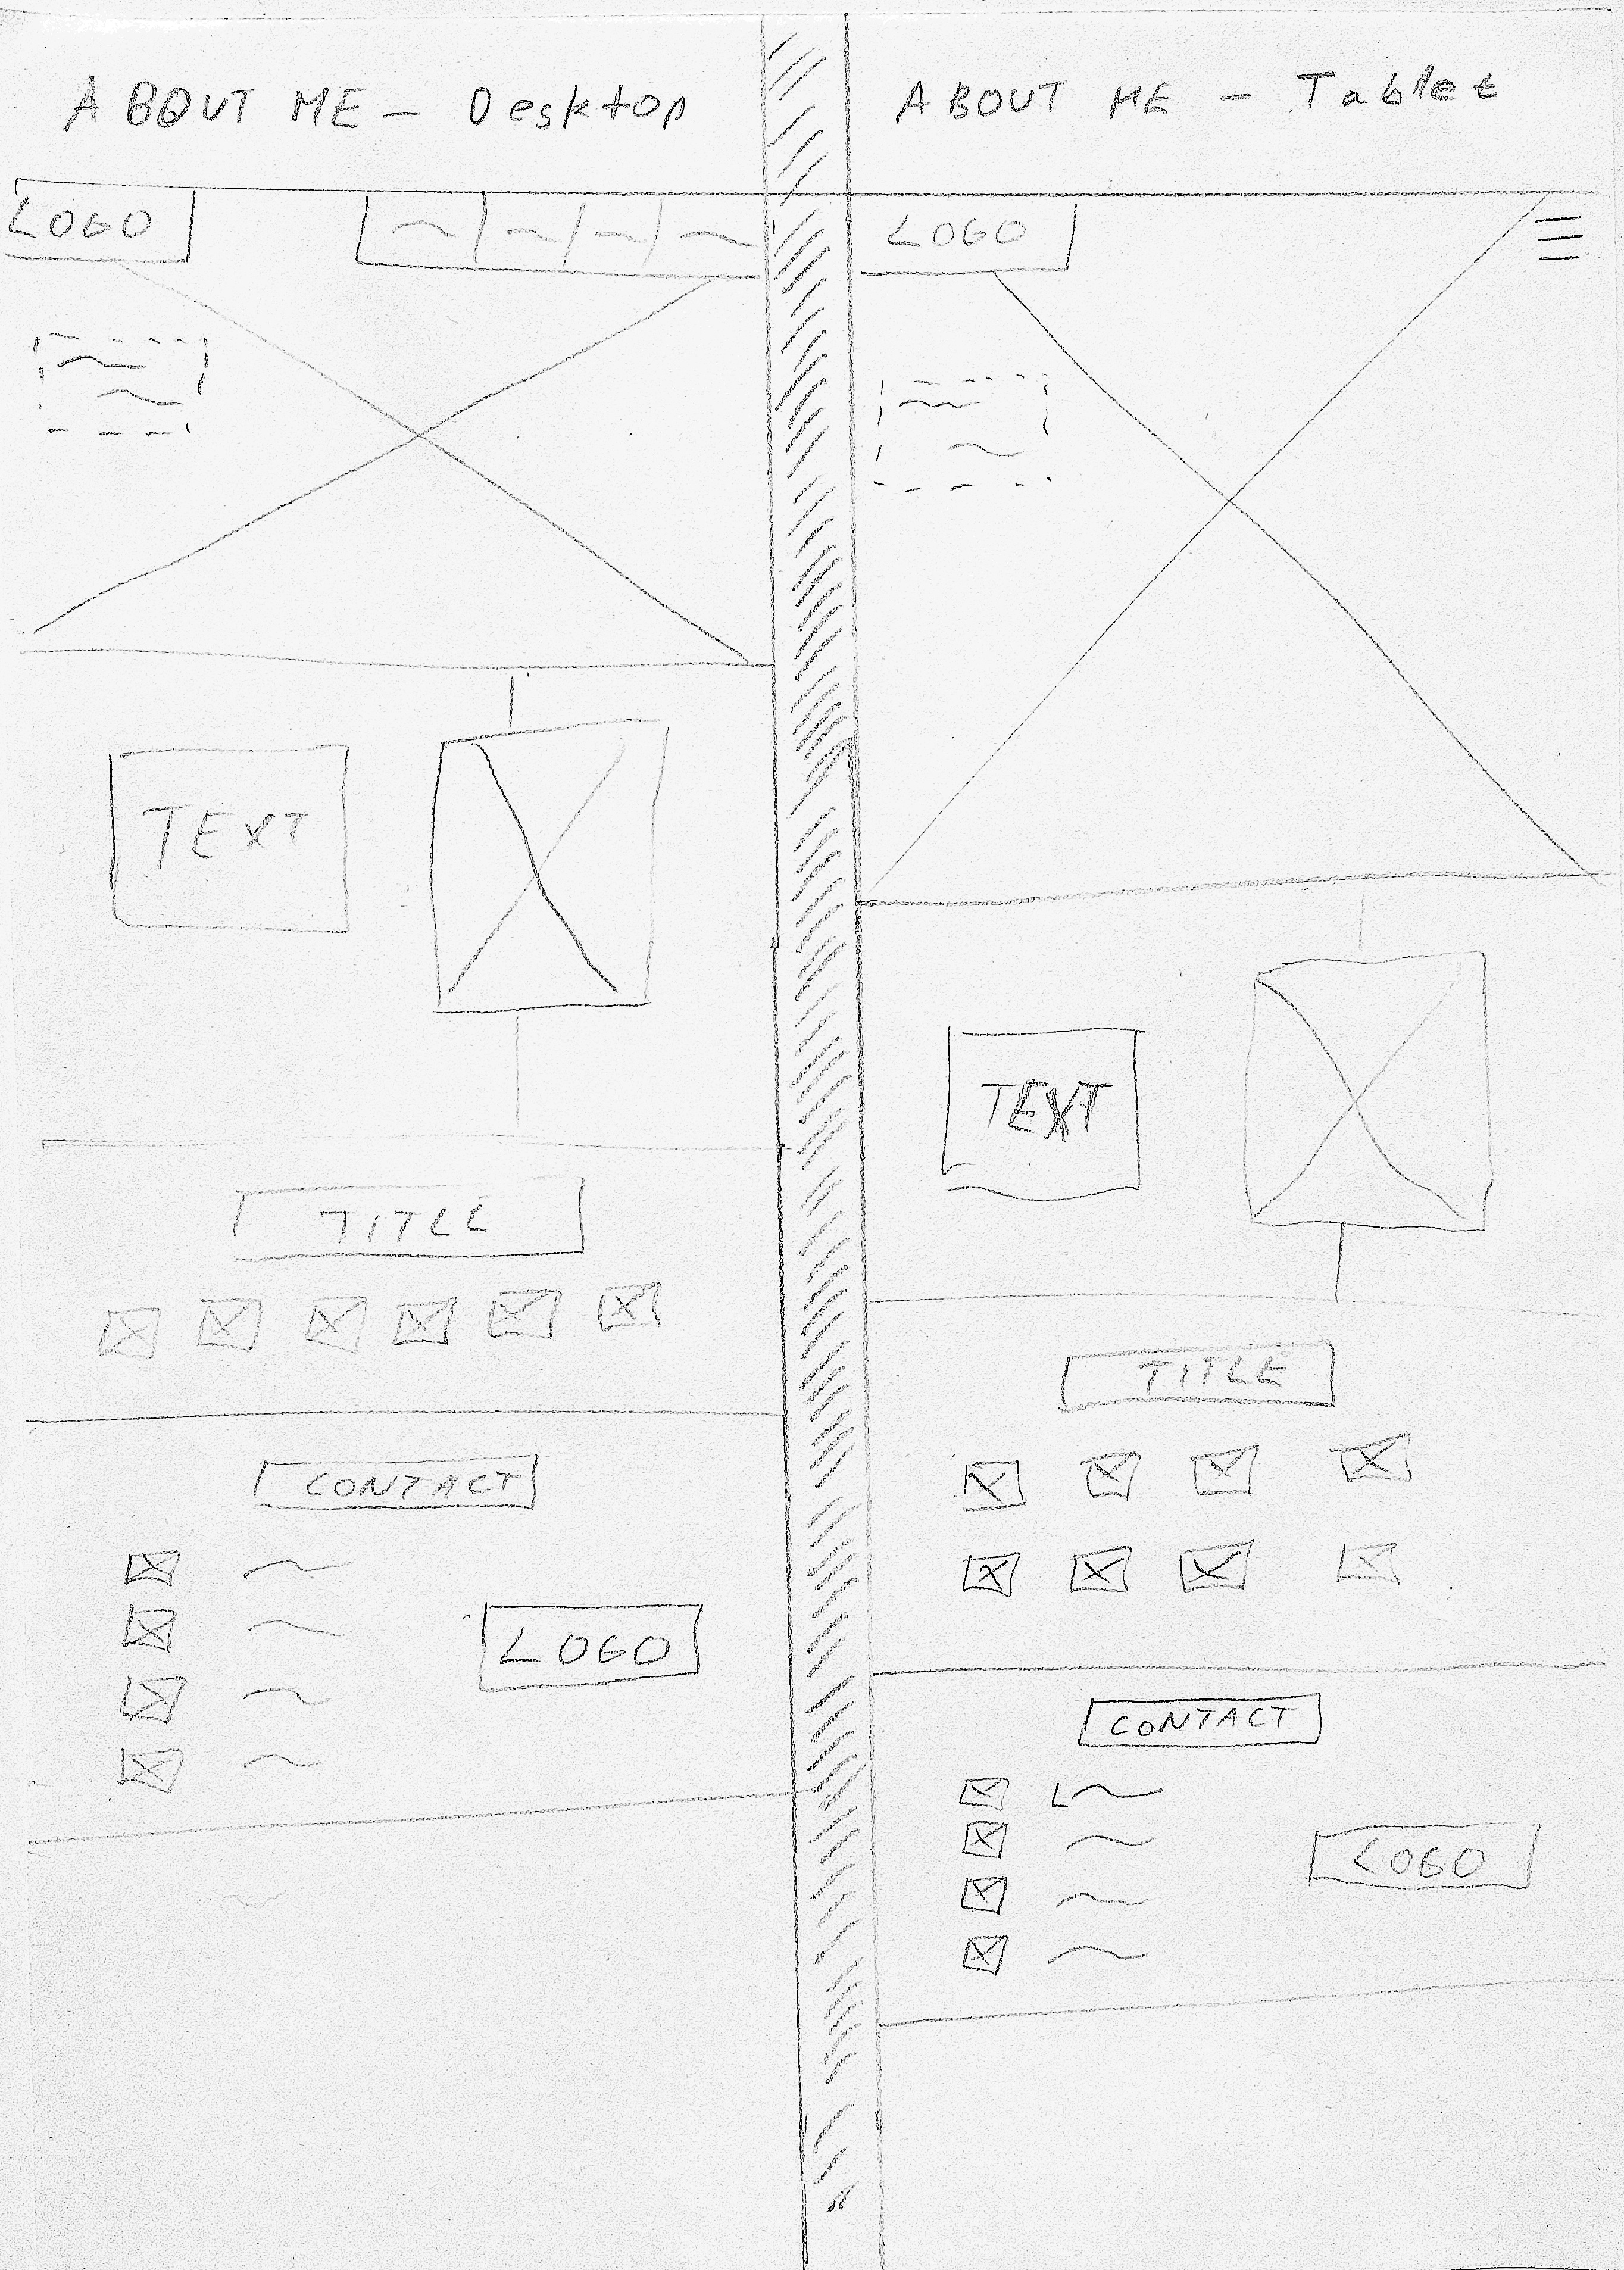 ABOUT ME - Desktop
LOGO
TEXT
TITLE
CONTACT
LOGO
ABOUT ME - Tablet
LOGO
TEXT
TITLE
CONTACT
LOGO